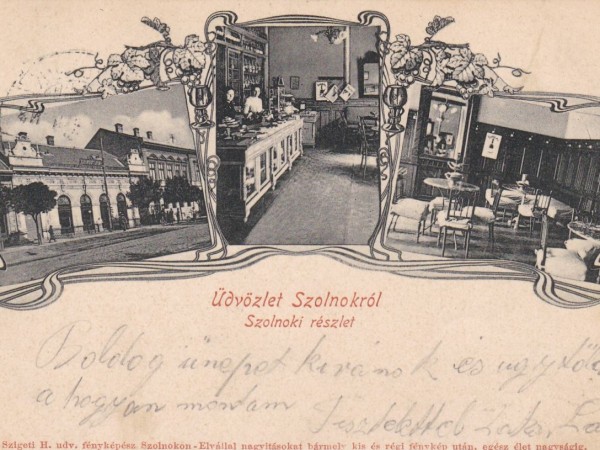 Üdvözlet Szolnokról
Szolnoki részlet
Boldog ünepet kivánok és
a hogyan montam
Szigeti H. udv. fényképész Szolnokon - Elvállal nagyitásokat bármely kis és régi fénykép után, egész élet nagyságig.